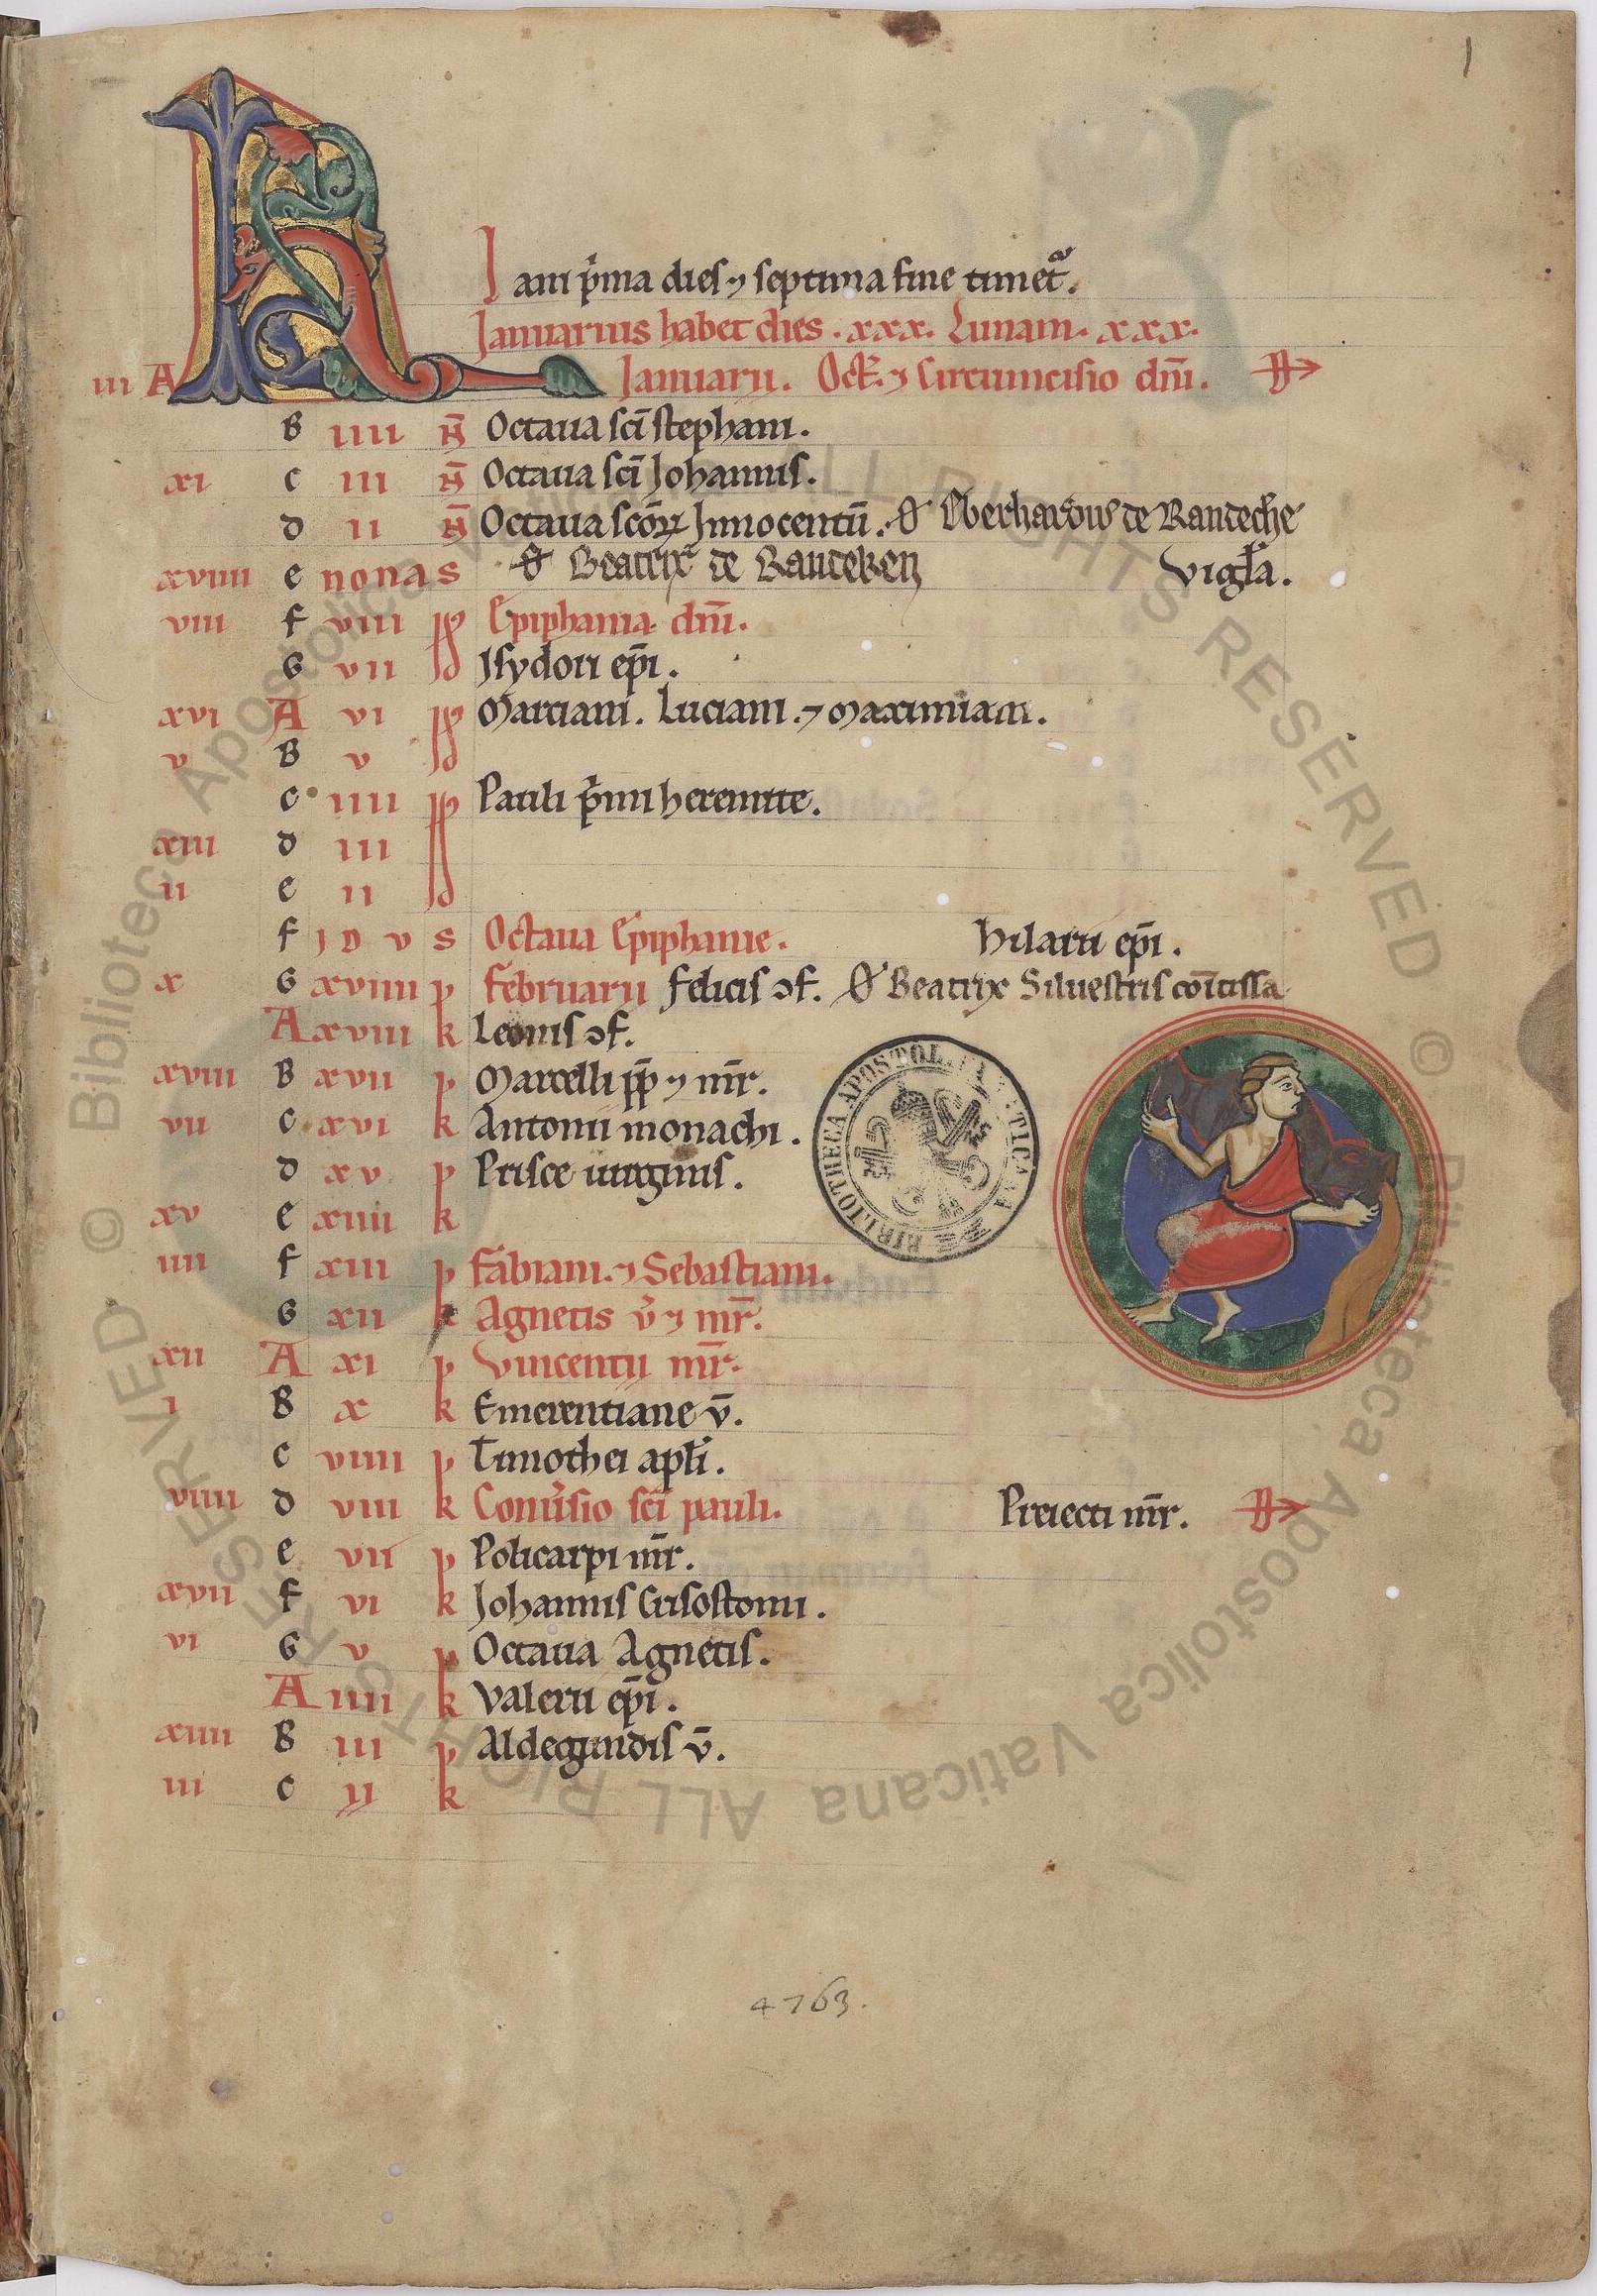 1
Iani p̄ma dies ⁊ septima fine timet̃.
Januarius habet dies . xxx. Lunam. xxx.
iii A KL Januarii. Oct̄. ⁊ Circumcisio dn̄i.
B iiii N̄ Octaua sc̄i stephani.
xi c iii N̄ Octaua sc̄i Johannis.
d ii N̄ Octaua sc̄oꝝ Innocentū. Eberhardus de Randeche
xviiii e nonas Beatrix de Randeken vigl̄a.
viii f viii Epiphania dn̄i.
G vii id Isydori ep̄i.
xvi A vi Marciani. Luciani. ⁊ Maximiani.
v B v id
c iiii Pauli p̄mi heremite.
xiii d iii
ii e ii id
f idvs Octaua Epiphanie. hilarii ep̄i.
x G xviiii p februarii felicis ↄf. Beatrix Siluestris com̄tissa
A xviii k Leonis ↄf.
xviii B xvii p Marcelli pp̄ ⁊ mr̄.
vii c xvi k Antonii monachi.
d xv p Prisce uirginis.
xv e xiiii k
iiii f xiii p fabiani. ⁊ Sebastiani.
G xii k Agnetis v̄ ⁊ mr̄.
xii A xi p Vincentii mr̄.
i B x k Emerentiane v̄.
c viiii p Timothei apl̄i.
viiii d viii k Conu̓sio sc̄i pauli. Preiecti mr̄.
e vii p Policarpi mr̄.
xvii f vi k Johannis Crisostomi.
vi G v p Octaua Agnetis.
A iiii k Valerii ep̄i.
xiiii B iii p Aldegundis v̄.
iii c ii k
BIBLIOTHECA APOSTOL. VATICANA
4763.
© Biblioteca Apostolica Vaticana ALL RIGHTS RESERVED © Biblioteca Apostolica Vaticana ALL RIGHTS RESERVED